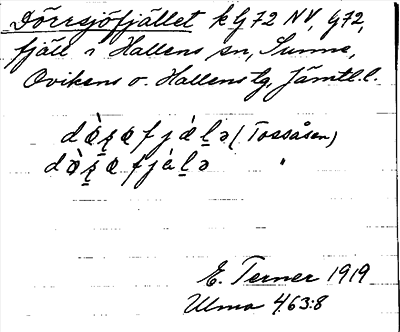 Dörrsjöfjället k G 72 NV, G 72,
fjäll i Hallens sn, Sunne,
Ovikens o. Hallens tg, Jämtl. l.
(Tossåsen)
"
E. Terner 1919
Ulma 463:8